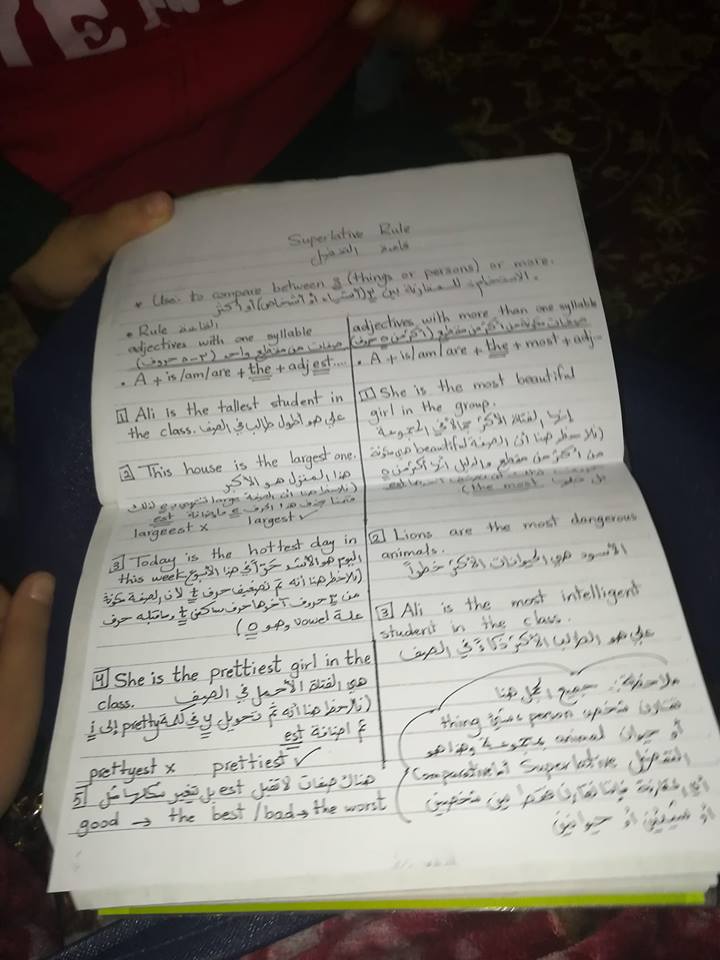 Superlative Rule
قاعدة التفضيل
* Use: to compare between 3 (things or persons) or more.
الاستخدام: للمقارنة بين ٣ (أشياء أو أشخاص) أو أكثر.
• Rule القاعدة
adjectives with one syllable
صفات من مقطع واحد (٣-٥ حروف)
• A + is/am/are + the + adj est...
1 Ali is the tallest student in
the class. علي هو أطول طالب في الصف
2 This house is the largest one.
هذا المنزل هو الأكبر
(نلاحظ هنا أن الصفة large تنتهي بـ e لذلك
est
largeest x largest ✓
3 Today is the hottest day in
this week اليوم هو الأشد حرّاً في هذا الأسبوع
(نلاحظ هنا أنه تم تضعيف حرف t لأن الصفة مكونة
من ٣ حروف آخرها حرف ساكن t وماقبله حرف
علة vowel وهو o)
4 She is the prettiest girl in the
class. هي الفتاة الأجمل في الصف
(نلاحظ هنا أنه تم تحويل y في كلمة pretty إلى i
ثم اضافة est
prettyest x prettiest ✓
5 هناك صفات لا تقبل est بل تغير شكلها مثل
good → the best / bad → the worst
adjectives with more than one syllable
صفات مكونة من أكثر من مقطع (أكثر من ٥ حرف)
• A + is/am/are + the + most + adj-
1 She is the most beautiful
girl in the group.
إنها الفتاة الأكثر جمالاً في المجموعة
(نلاحظ هنا أن الصفة beautiful مكونة
من أكثر من مقطع والدليل أنها أكثر من ٥
est
(the most
2 Lions are the most dangerous
animals.
الأسود هي الحيوانات الأكثر خطراً
3 Ali is the most intelligent
student in the class.
علي هو الطالب الأكثر ذكاءً في الصف
ملاحظة: جميع الجمل هنا
تقارن شخص person شيء thing
أو حيوان animal بمجموعة وهذا هو
التفضيل Superlative أما Comparative
المقارنة فإنها تقارن فقط بين شخصين
أو شيئين أو حيوانين